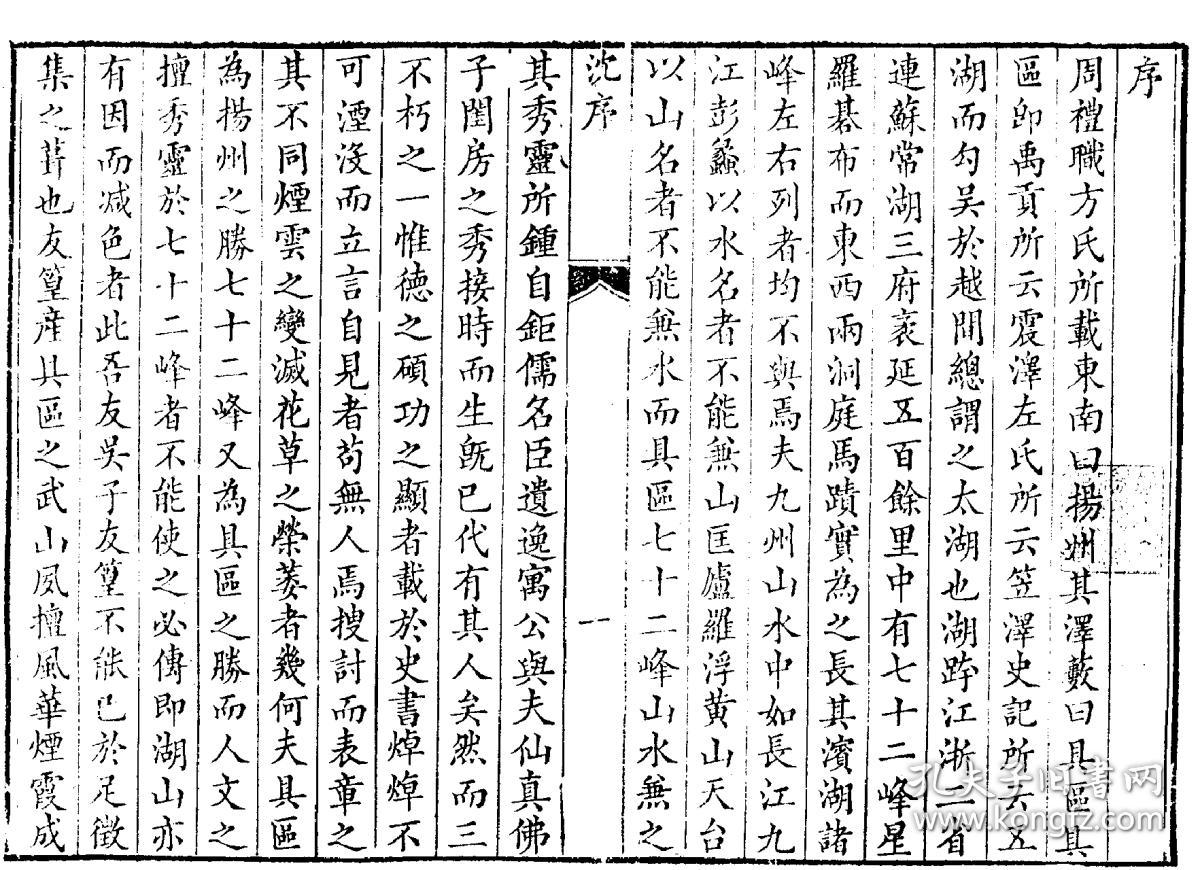 序
周禮職方氏所載東南曰揚州其澤藪曰具區具
區即禹貢所云震澤左氏所云笠澤史記所云五
湖而勾吳於越間總謂之太湖也湖跨江浙二省
連蘇常湖三府袤延五百餘里中有七十二峰星
羅碁布而東西兩洞庭馬蹟實為之長其濱湖諸
峰左右列者均不與焉夫九州山水中如長江九
江彭蠡以水名者不能無山匡廬羅浮黃山天台
以山名者不能無水而具區七十二峰山水兼之
沈序
一
其秀靈所鍾自鉅儒名臣遺逸寓公與夫仙真佛
子閨房之秀接時而生旣已代有其人矣然而三
不朽之一惟德之碩功之顯者載於史書焯焯不
可湮沒而立言自見者苟無人焉搜討而表章之
其不同煙雲之變滅花草之榮萎者幾何夫具區
為揚州之勝七十二峰又為具區之勝而人文之
擅秀靈於七十二峰者不能使之必傳即湖山亦
有因而減色者此吾友吳子友篁不能已於足徵
集之葺也友篁産具區之武山夙擅風華煙霞成
孔夫子旧书网
www.kongfz.com